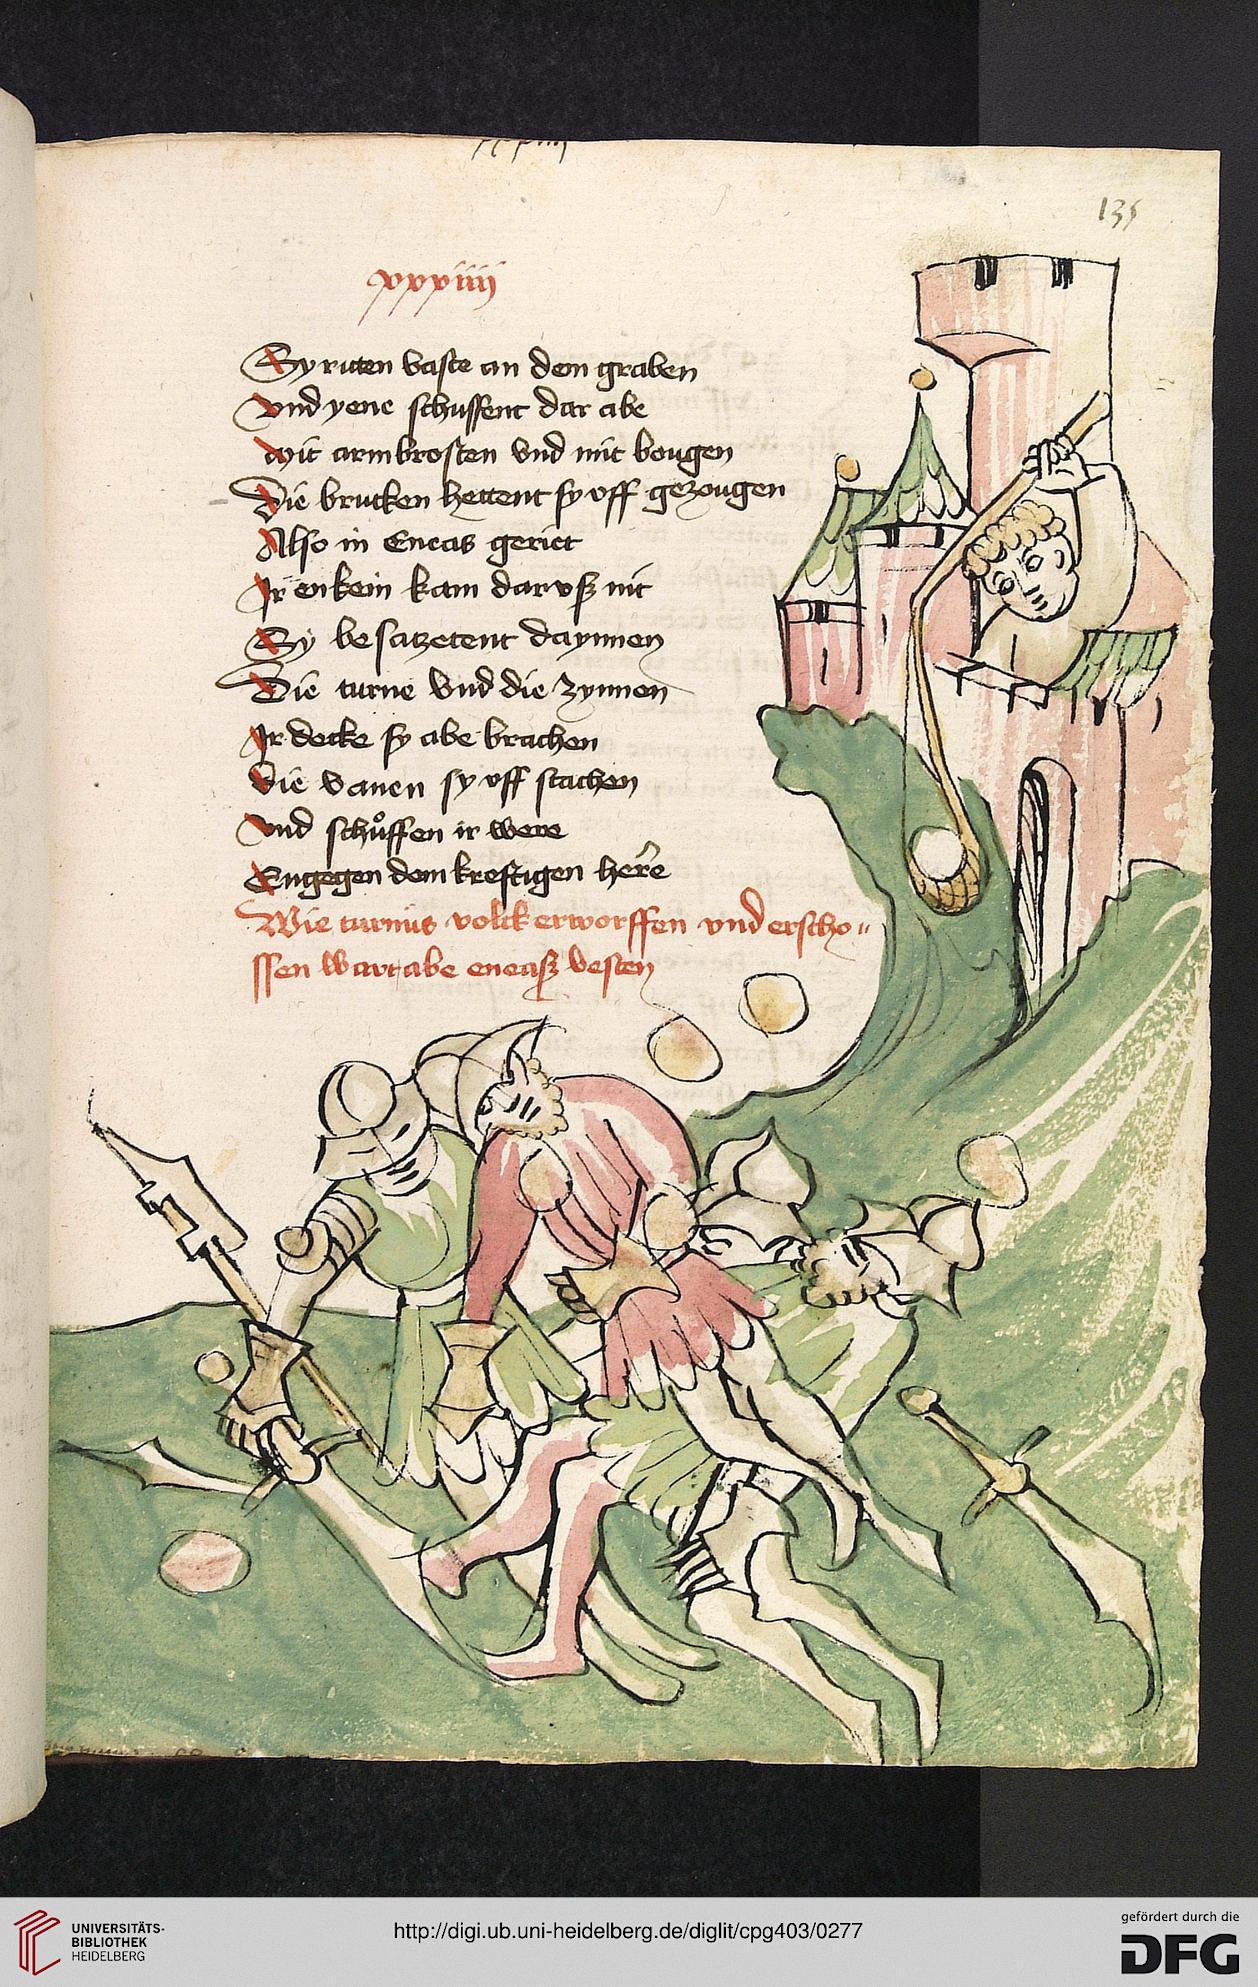 135
xxxiiij
Sy ritten vaste an dem graben
vnd yene schussent dar abe
mit armbrosten vnd mit bougen
Die brucken hettent sy vff gezougen
Also in Eneas geriet
Jr enkein kam dar vß nit
Sy besatzetent da ynnen
Die turne vnd die zynnen
Jr decke sy abe brachen
Die vanen sy vff stachen
vnd schůffen ir were
Engegen dem kreftigen here
Wie turnus volck erworffen vnd erscho„
ssen wart abe eneasz vesten
UNIVERSITÄTS-
BIBLIOTHEK
HEIDELBERG
http://digi.ub.uni-heidelberg.de/diglit/cpg403/0277
gefördert durch die
DFG